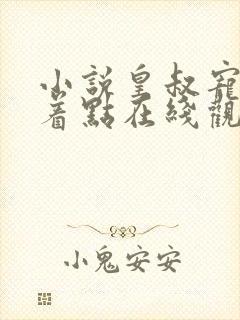 小說皇叔寵
著點在綫觀
小鬼安安